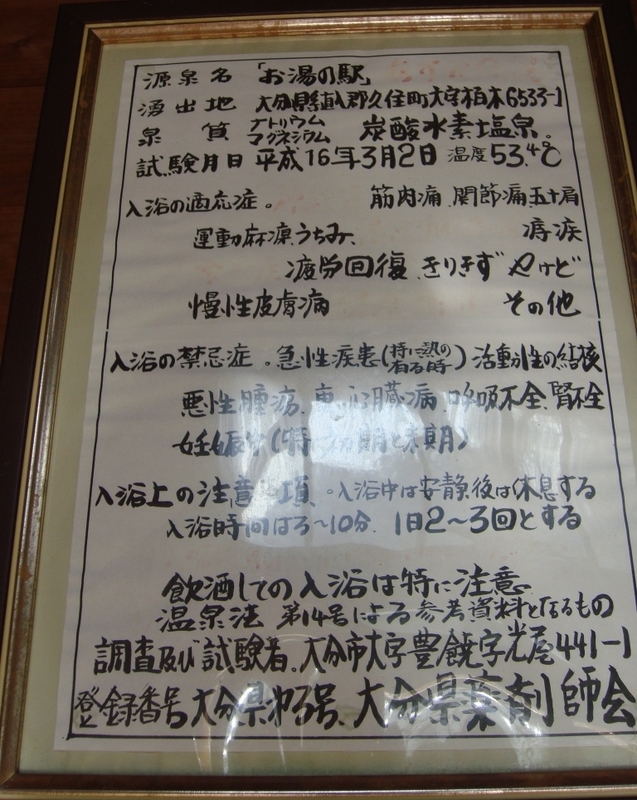 源泉名 「お湯の駅
湧出地 大分県直入郡久住町大字栢木6533-1
泉質 ナトリウム マグネシウム 炭酸水素塩泉。
試験月日 平成16年3月2日 温度53.4℃
入浴の適応症。 筋肉痛 関節痛 五十肩
運動麻痺 うちみ、 痔疾
疲労回復 きりきず やけど
慢性皮膚病 その他
入浴の禁忌症。急性疾患(特に熱の有る時)活動性の結核
悪性腫瘍、重い心臓病、呼吸不全、腎不全
妊娠中(特に初期と末期)
入浴上の注意事項。入浴中は安静後は休息する
入浴時間は3〜10分. 1日2〜3回とする
飲酒しての入浴は特に注意
温泉法 第14号による参考資料となるもの
調査及び試験者。大分市大字豊饒字光屋441-1
登録番号 大分県 第3号、大分県薬剤師会